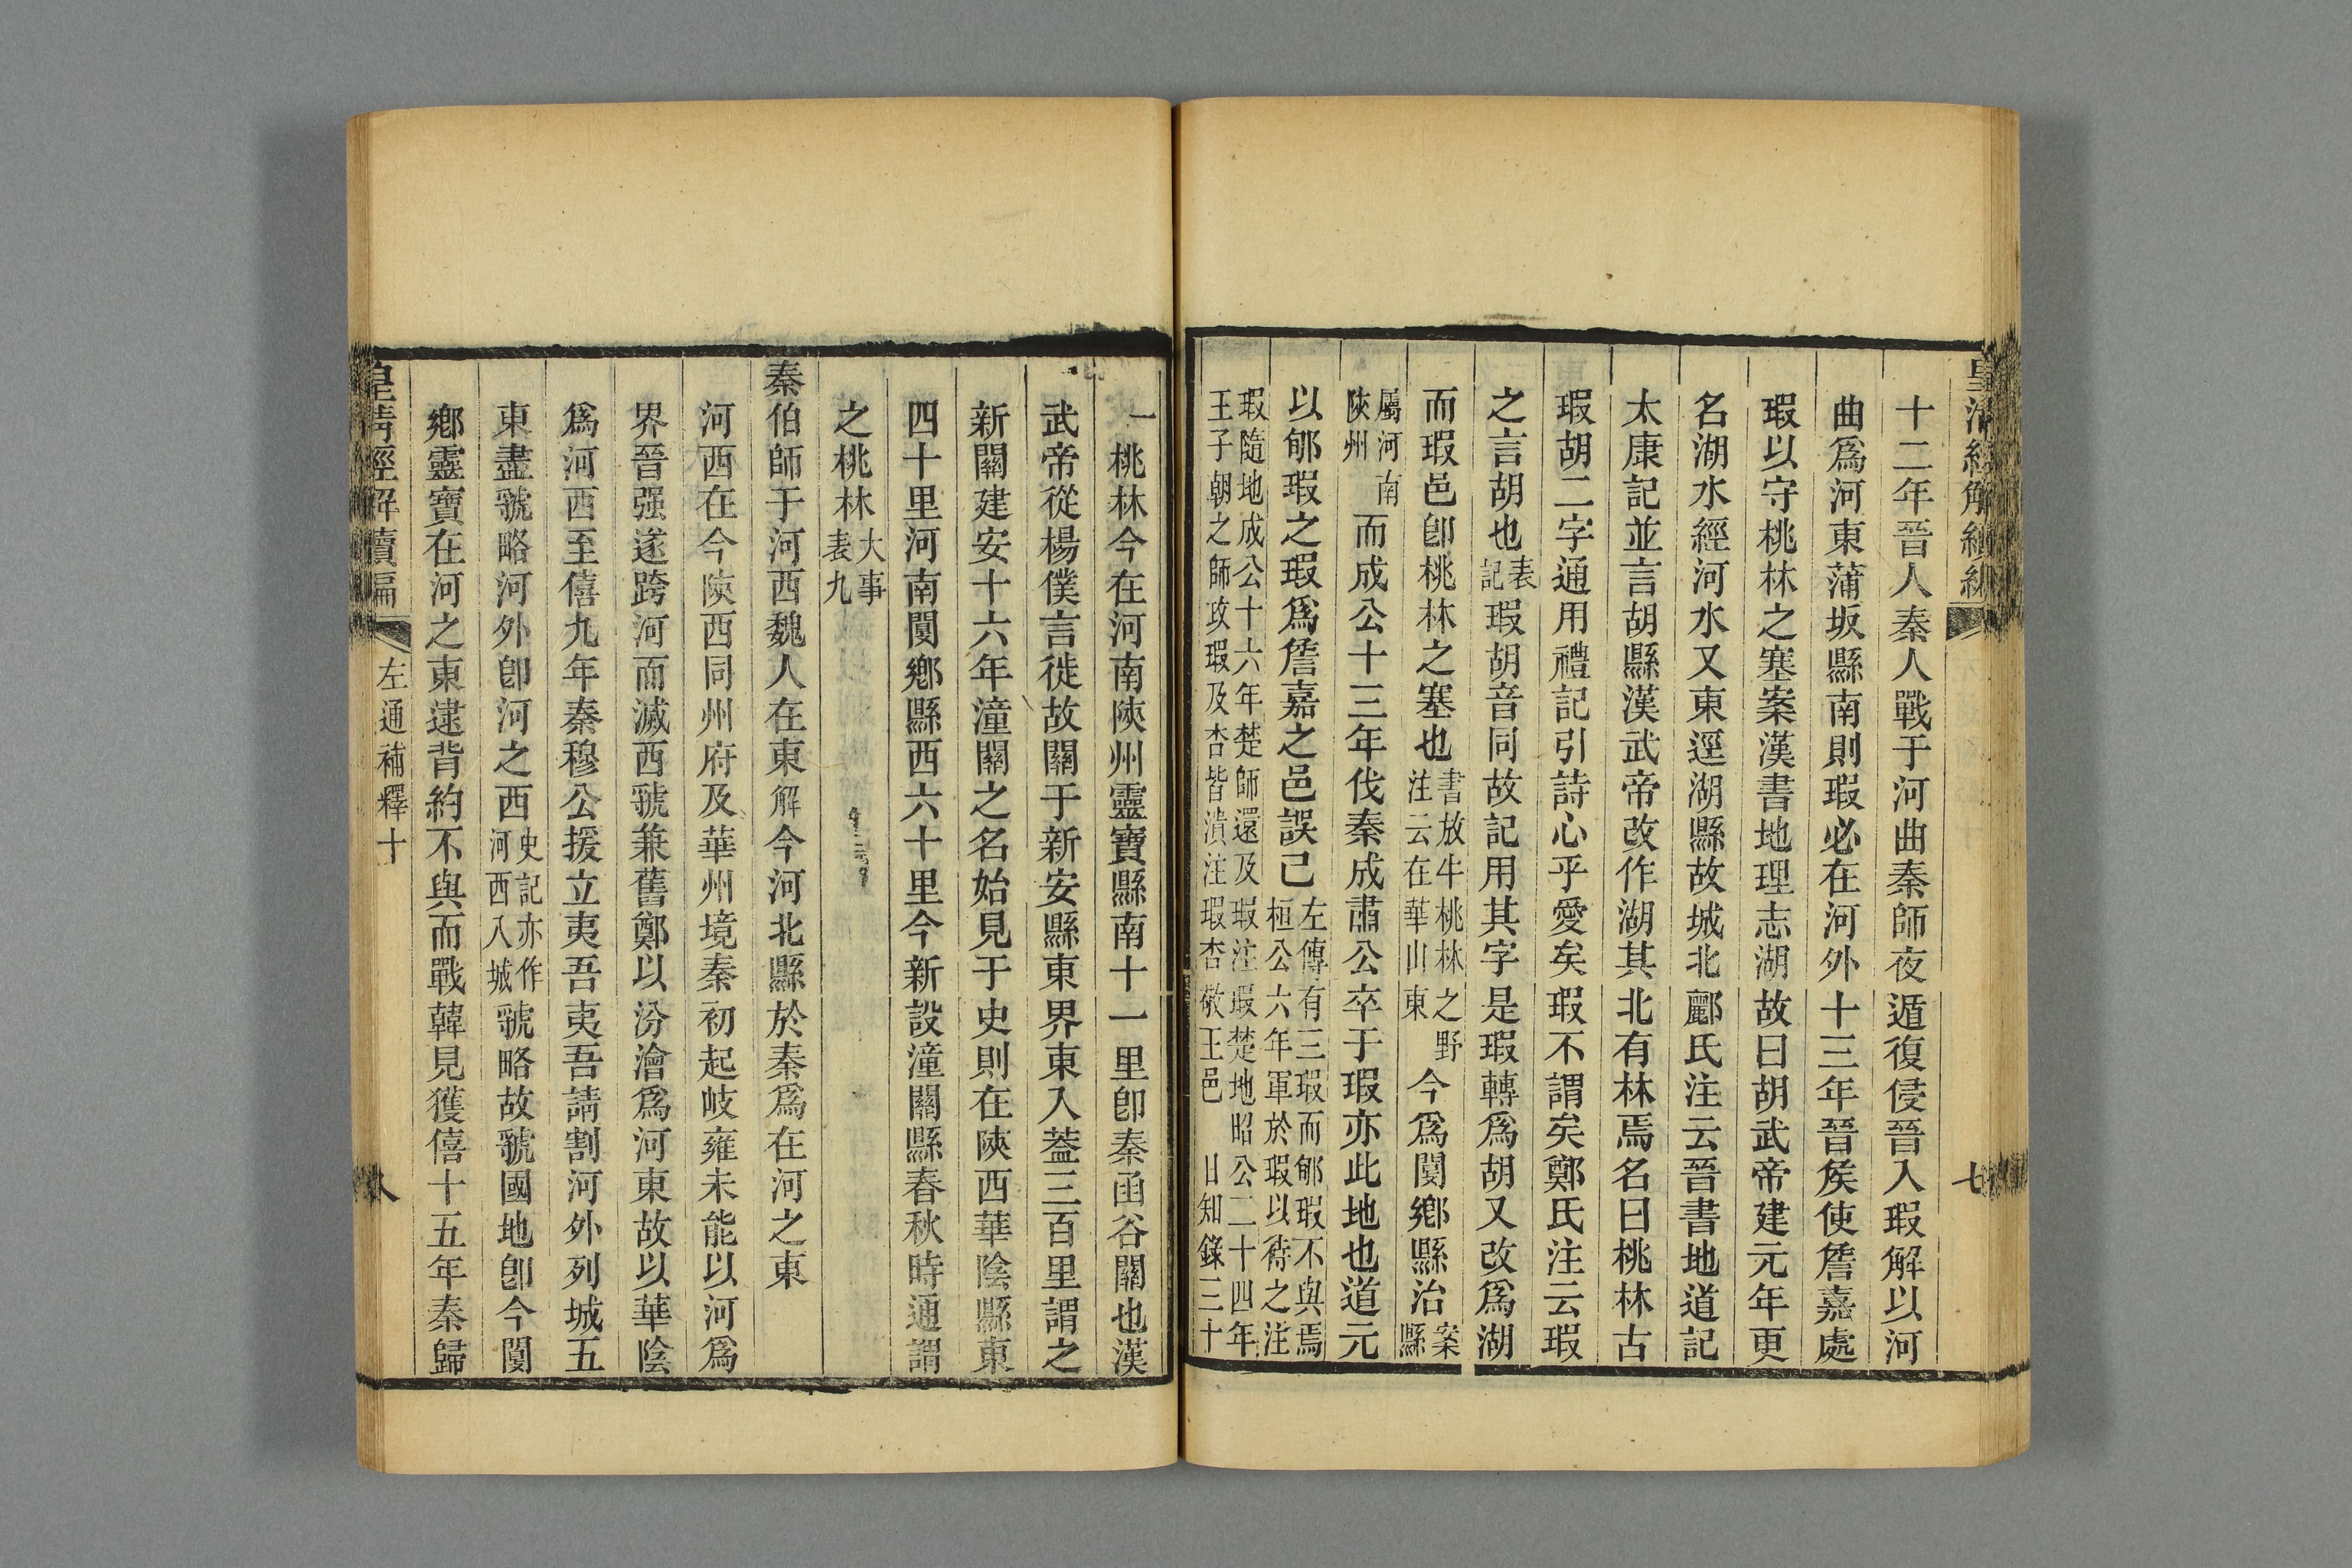 皇清經解續編
七
十二年晉人秦人戰于河曲秦師夜遁復侵晉入瑕解以河
曲爲河東蒲坂縣南則瑕必在河外十三年晉矦使詹嘉處
瑕以守桃林之塞案漢書地理志湖故曰胡武帝建元年更
名湖水經河水又東逕湖縣故城北酈氏注云晉書地道記
太康記並言胡縣漢武帝改作湖其北有林焉名曰桃林古
瑕胡二字通用禮記引詩心乎愛矣瑕不謂矣鄭氏注云瑕
之言胡也表記瑕胡音同故記用其字是瑕轉爲胡又改爲湖
而瑕邑卽桃林之塞也書放牛桃林之野注云在華山東今爲閿鄉縣治案縣
屬河南陜州而成公十三年伐秦成肅公卒于瑕亦此地也道元
以郇瑕之瑕爲詹嘉之邑誤已左傳有三瑕而郇瑕不與焉桓公六年軍於瑕以待之注
瑕隨地成公十六年楚師還及瑕注瑕楚地昭公二十四年王子朝之師攻瑕及杏皆潰注瑕杏敬王邑 日知錄三十
一桃林今在河南陜州靈寶縣南十一里卽秦函谷關也漢
武帝從楊僕言徙故關于新安縣東界東入葢三百里謂之
新關建安十六年潼關之名始見于史則在陜西華陰縣東
四十里河南閿鄉縣西六十里今新設潼關縣春秋時通謂
之桃林大事表九
秦伯師于河西魏人在東解今河北縣於秦爲在河之東
河西在今陜西同州府及華州境秦初起岐雍未能以河爲
界晉强遂跨河而滅西虢兼舊鄭以汾澮爲河東故以華陰
爲河西至僖九年秦穆公援立夷吾夷吾請割河外列城五
東盡虢略河外卽河之西史記亦作河西八城虢略故虢國地卽今閿
鄉靈寶在河之東逮背約不與而戰韓見獲僖十五年秦歸
皇清經解續編
左通補釋十
八